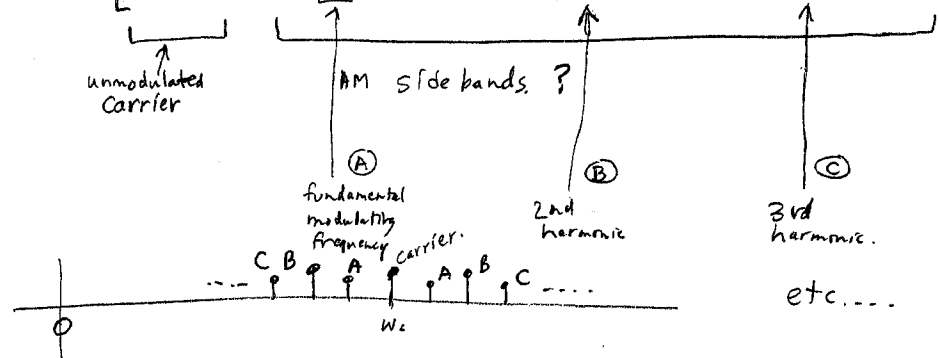 unmodulated
carrier
AM side bands. ?
A
B
C
fundamental
modulating
frequency
2nd
harmonic
3rd
harmonic.
carrier.
C B A A B C
.... ....
etc....
0
Wc